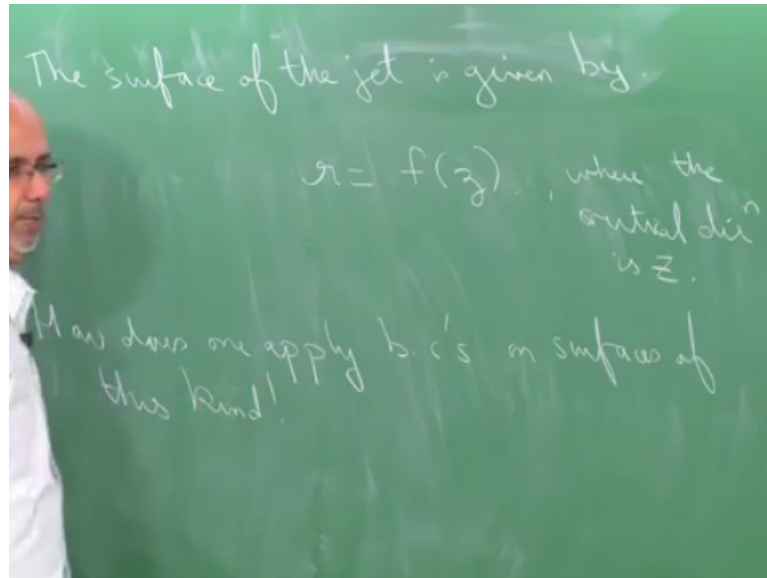 The surface of the jet is given by.
r = f(z) . , where the
axial dirⁿ
is z.
How does one apply b.c's on surfaces of
this kind!